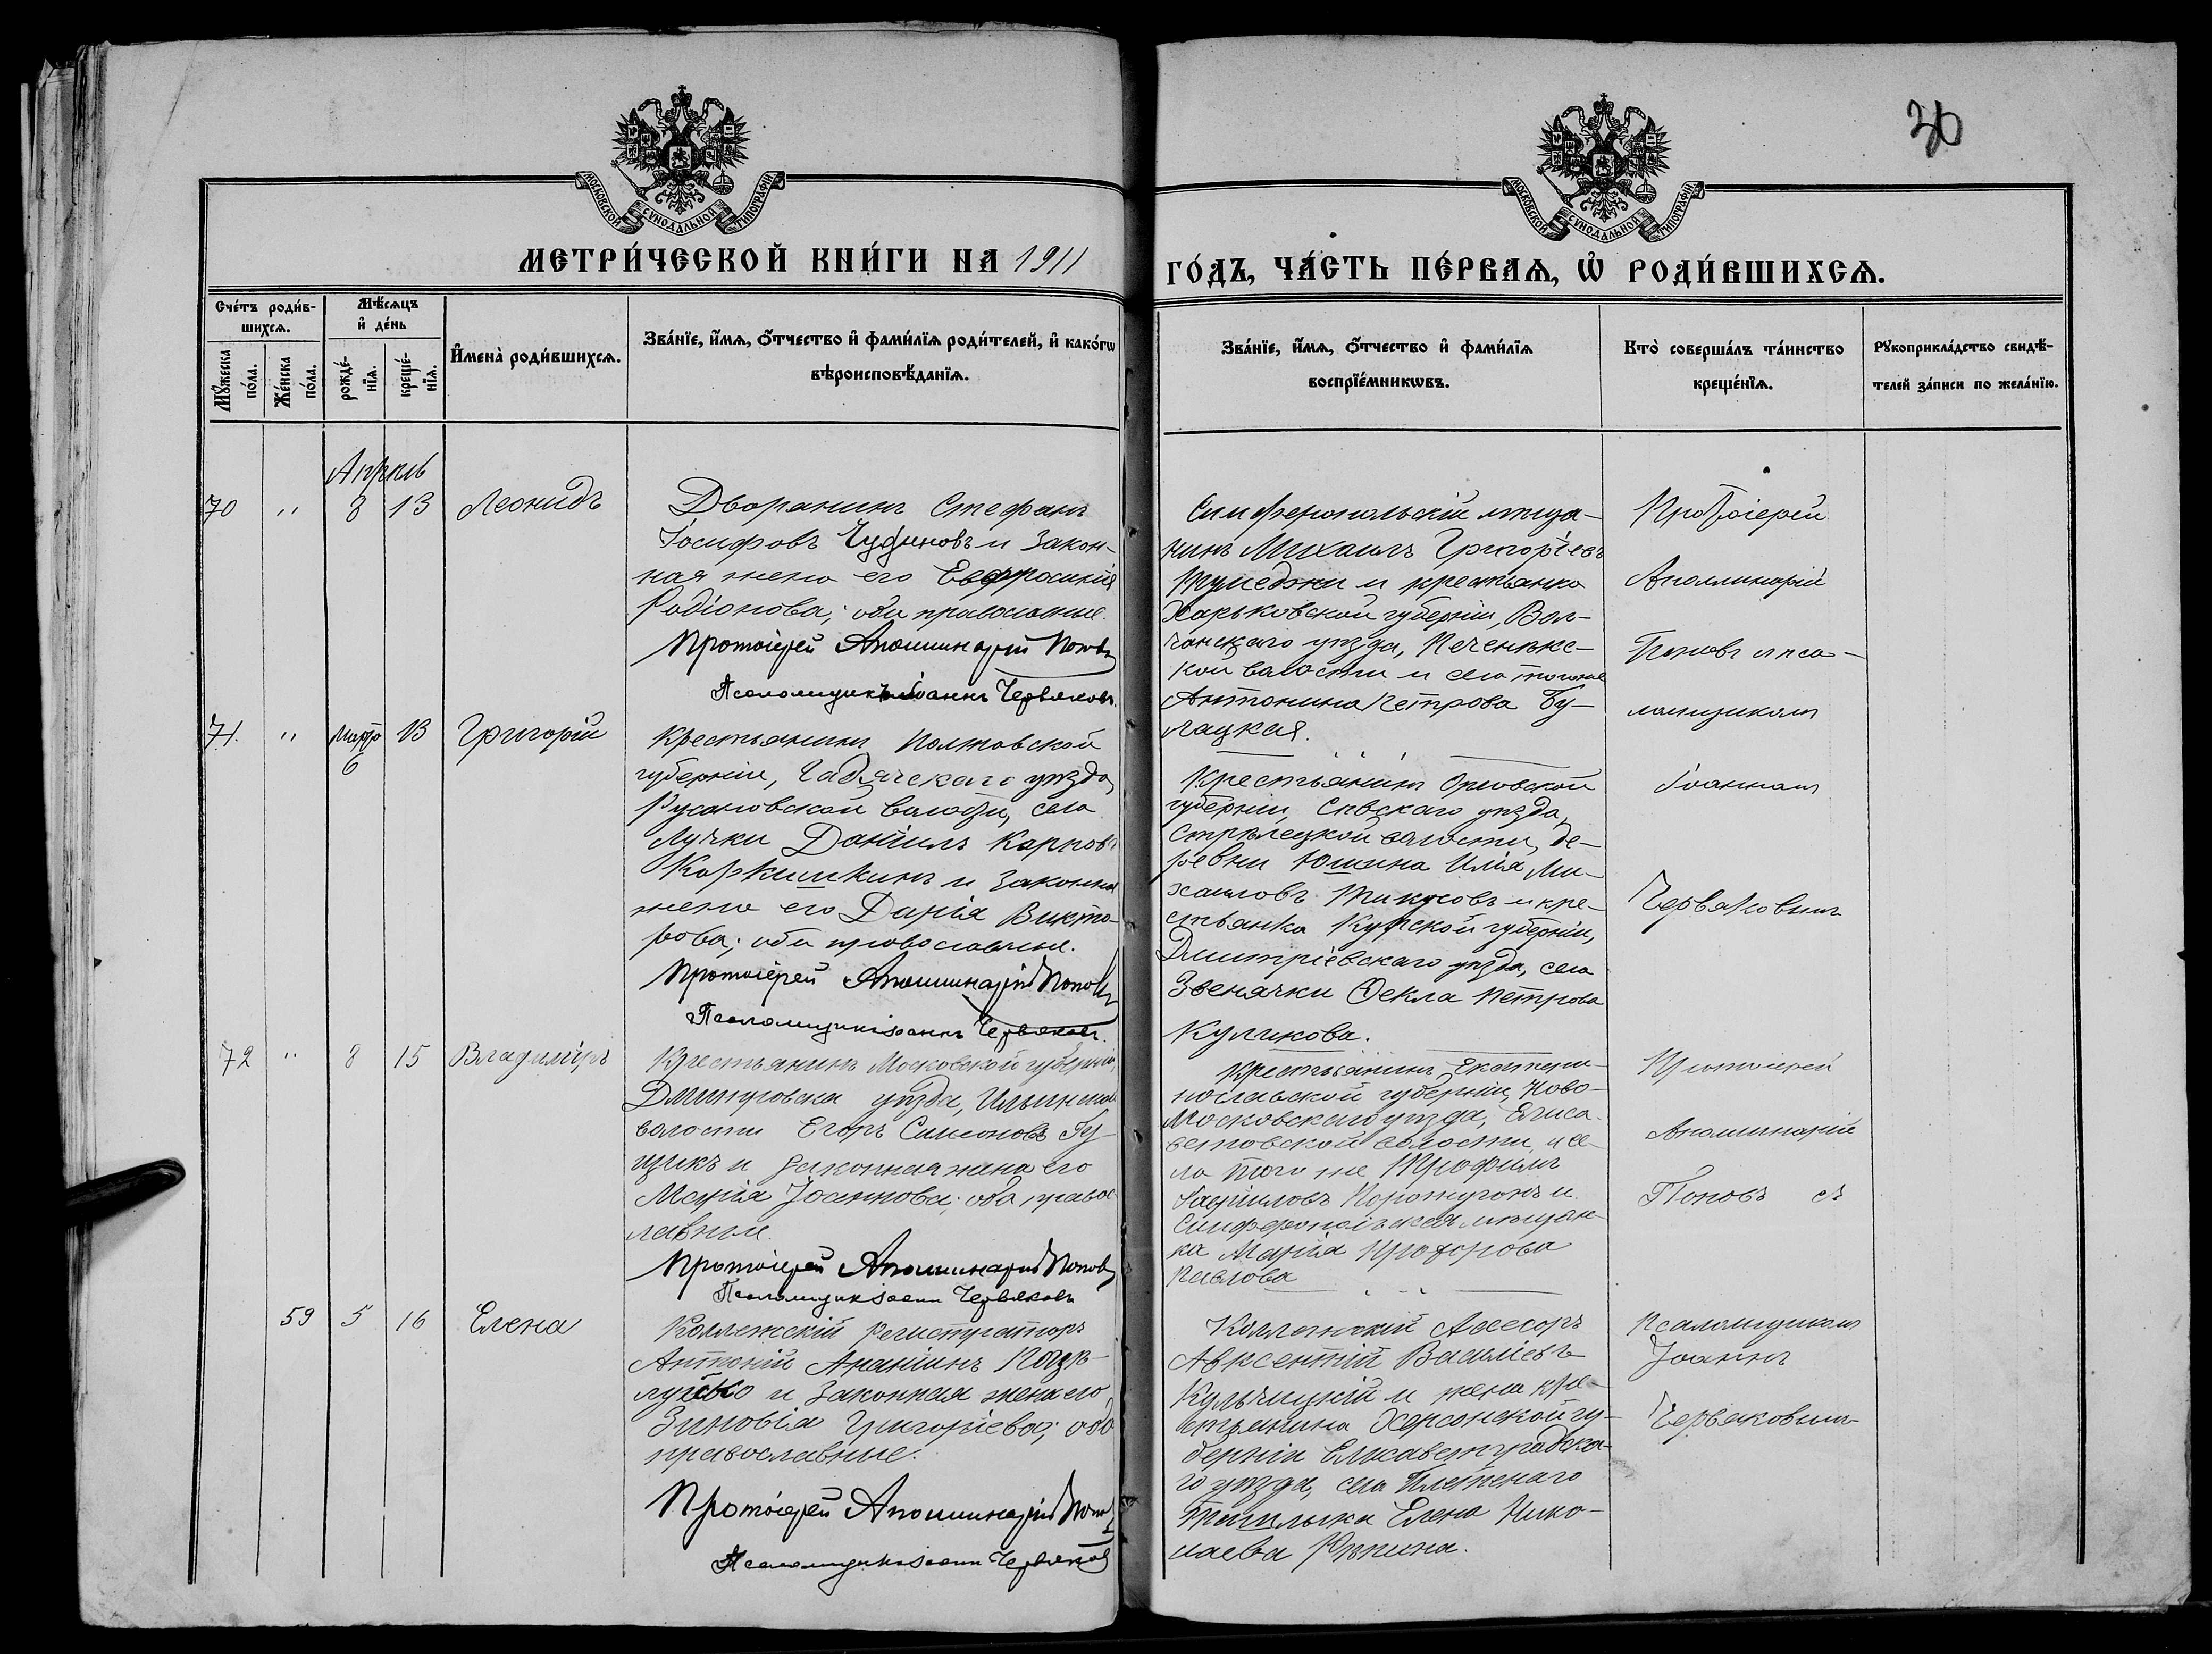 36
МОСКОВСКОЙ СѴНОДАЛЬНОЙ ТИПОГРАФІИ
МОСКОВСКОЙ СѴНОДАЛЬНОЙ ТИПОГРАФІИ
МЕТРИ́ЧЕСКОЙ КНИ́ГИ НА 1911
ГО́ДЪ, ЧА́СТЬ ПЕ́РВАѦ, Ѡ҆ РОДИ́ВШИХСѦ.
Сче́тъ роди́в-
шихсѧ.
Мꙋ́жеска по́ла.
Же́нска по́ла.
Мѣ́сѧцъ
и҆ де́нь
рожде́-
нїѧ.
креще́-
нїѧ.
И҆мена̀ роди́вшихсѧ.
Зва́нїе, и҆́мѧ, ѻ҆́тчество и҆ фами́лїѧ роди́телей, и҆ како́гѡ
вѣроисповѣ́данїѧ.
Зва́нїе, и҆́мѧ, ѻ҆́тчество и҆ фами́лїѧ
воспрїе́мникѡвъ.
Кто̀ соверша́лъ та́инство
креще́нїѧ.
Рꙋкоприкла́дство свидѣ́-
телей за́писи по жела́нїю.
Апрѣль
70 " 8 13 Леонидъ
Дворянинъ Стефанъ
Іосифовъ и закон-
ная жена его Евфросинія
Родіонова; оба православные.
Протоіерей Аполлинарій Поповъ
Псаломщикъ Іоаннъ Червяковъ.
Симферопольскій мѣща-
нинъ Михаилъ Григорьевъ
и крестьянка
Харьковской губерніи, Вол-
чанскаго уѣзда, Печенѣжс-
кой волости и села того же
Антонина Петрова Бу-
лацкая.
Протоіерей
Аполлинарій
Поповъ и пса-
ломщикомъ
Іоанномъ
Червяковымъ
71. " Марта 6 13 Григорій
Крестьянинъ Полтавской
губерніи, Гадячскаго уѣзда,
Русановской волости, села
Лучки Даніилъ Карповъ
Коржишкинъ и законная
жена его Дарія Викто-
рова; оба православные.
Протоіерей Аполлинарій Поповъ
Псаломщикъ Іоаннъ Червяковъ.
Крестьянинъ Орловской
губерніи, Сѣвскаго уѣзда,
Стрѣлецкой волости, де-
ревни Юшина Илія Ми-
хаиловъ и кре-
стьянка Курской губерніи,
Дмитріевскаго уѣзда, села
Звенячки Ѳекла Петрова
Куликова.
72 " 8 15 Владиміръ
Крестьянинъ Московской губерніи,
Дмитровска уѣзда, Ильинской
волости Егоръ Симоновъ Гу-
щикъ и законная жена его
Марія Іоаннова; оба правос-
лавные.
Протоіерей Аполлинарій Поповъ
Псаломщикъ Іоаннъ Червяковъ
Крестьянинъ Екатери-
нославской губерніи, Ново-
Московскаго уѣзда, Елиса-
ветовской волости и се-
ла того же Трофимъ
Гавріиловъ и
Симферопольская мѣщан-
ка Марія Прохорова
Павлова
Протоіерей
Аполлинарій
Поповъ съ
59 5 16 Елена
Коллежскій регистраторъ
Антоній Ананіинъ
и законная жена его
Зиновія Григоріева; оба
православные.
Протоіерей Аполлинарій Поповъ
Псаломщикъ Іоаннъ Червяковъ
Коллежскій Асесоръ
Авксентій Васильевъ
Кульчицкій и жена кре-
стьянина Херсонской гу-
берніи Елисаветградска-
го уѣзда, села Плетенаго
Ташлыка Елена Нико-
лаева Рѣпина.
Псаломщикомъ
Іоаннъ
Червяковымъ